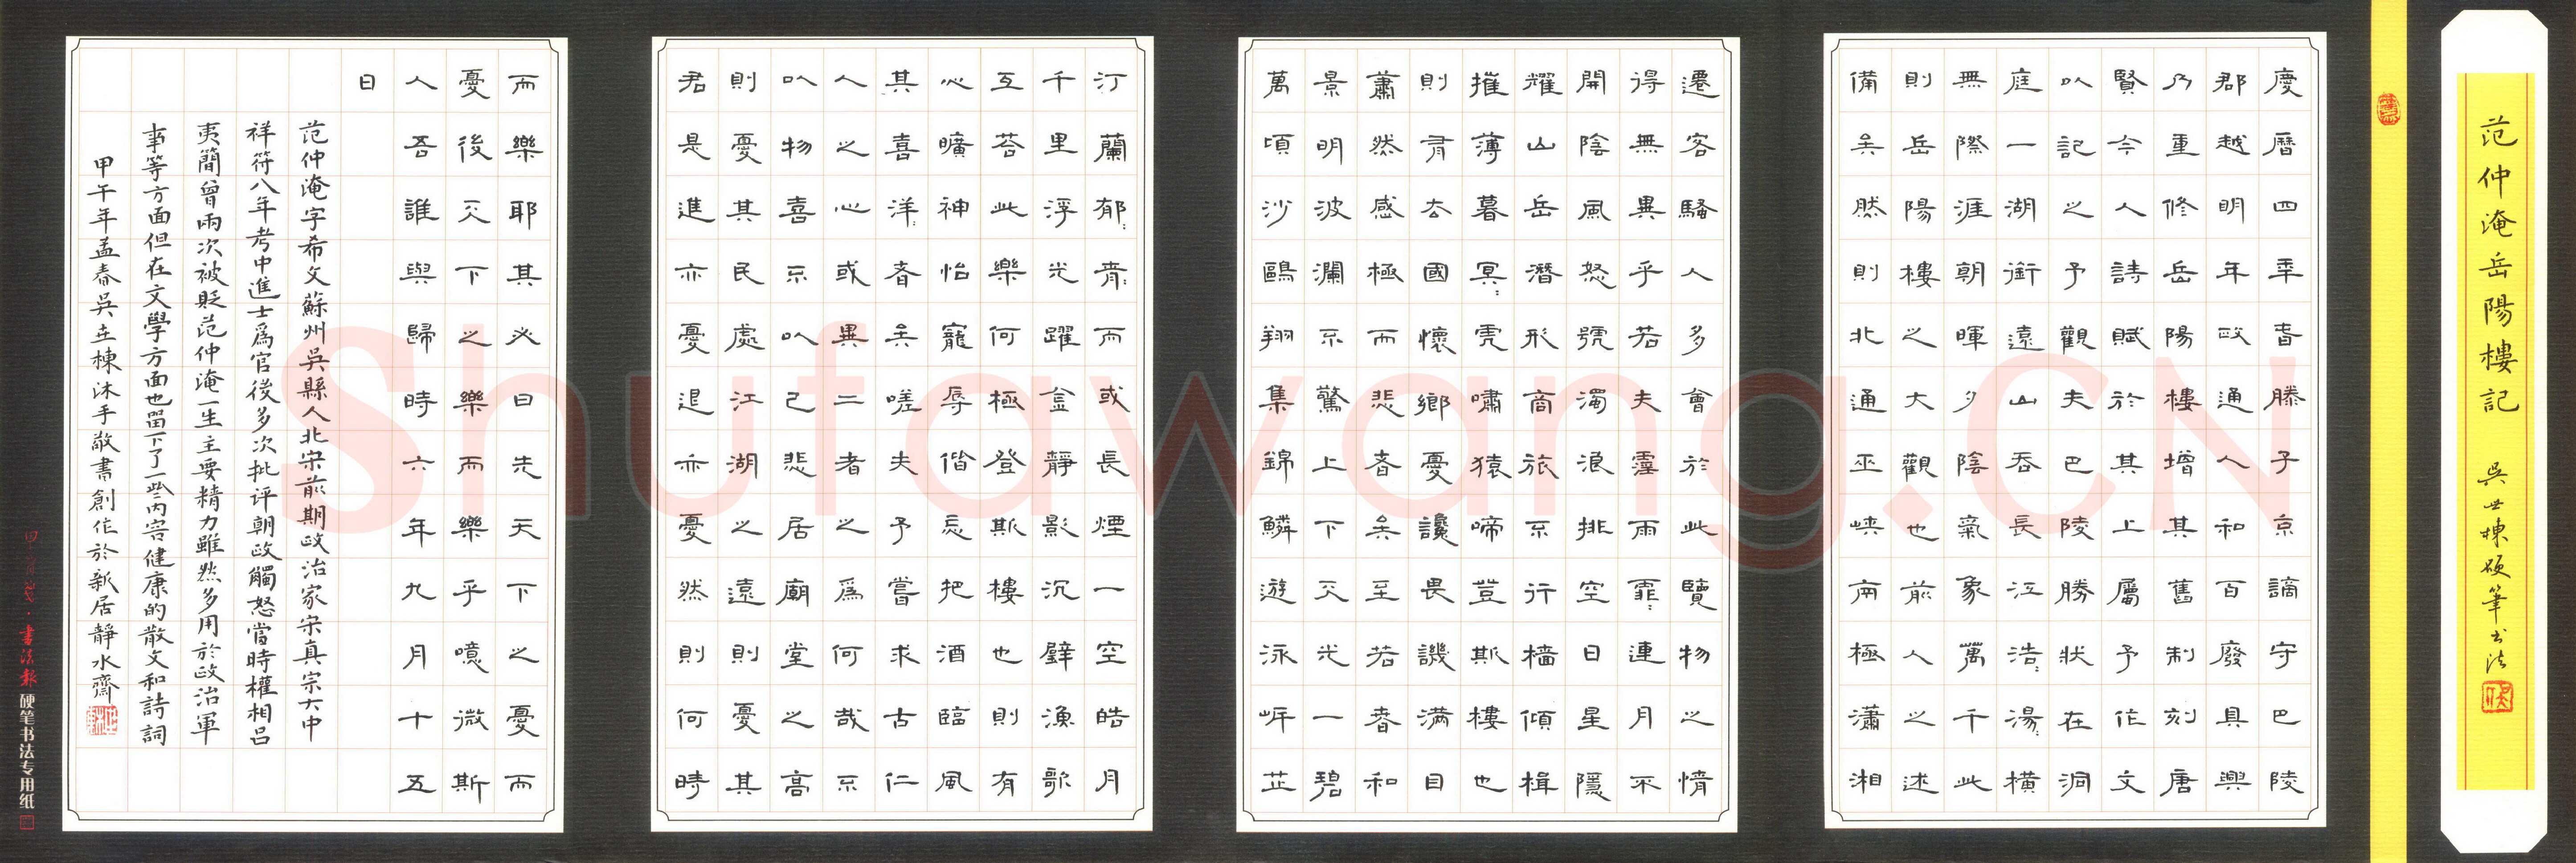 范仲淹岳陽樓記 吳世棟硬筆書法
慶曆四年春滕子京謫守巴陵
郡越明年政通人和百廢具興
乃重修岳陽樓增其舊制刻唐
賢今人詩賦於其上屬予作文
以記之予觀夫巴陵勝狀在洞
庭一湖銜遠山吞長江浩:湯:橫
無際涯朝暉夕陰氣象萬千此
則岳陽樓之大觀也前人之述
備矣然則北通巫峽南極瀟湘
遷客騷人多會於此覽物之情
得無異乎若夫霪雨霏:連月不
開陰風怒號濁浪排空日星隱
耀山岳潛形商旅不行檣傾楫
摧薄暮冥:虎嘯猿啼豈斯樓也
則有去國懷鄉憂讒畏譏满目
蕭然感極而悲者矣至若春和
景明波瀾不驚上下天光一碧
萬頃沙鷗翔集錦鱗遊泳岸芷
汀蘭郁:青:而或長煙一空皓月
千里浮光躍金靜影沉璧漁歌
互荅此樂何極登斯樓也則有
心曠神怡寵辱偕忘把酒臨風
其喜洋:者矣嗟夫予嘗求古仁
人之心或異二者之為何哉不
以物喜不以己悲居廟堂之高
則憂其民處江湖之遠則憂其
君是進亦憂退亦憂然則何時
而樂耶其必曰先天下之憂而
憂後天下之樂而樂乎噫微斯
人吾誰與歸時六年九月十五
日
范仲淹字希文蘇州吳縣人北宋前期政治家宋真宗大中
祥符八年考中進士爲官後多次批评朝政觸怒當時權相呂
夷簡曾兩次被貶范仲淹一生主要精力雖然多用於政治軍
事等方面但在文學方面也留下了一些內容健康的散文和詩詞
甲午年孟春吳世棟沐手敬書創作於新居靜水齋
書法報 硬笔书法专用纸
Shufawang.CN